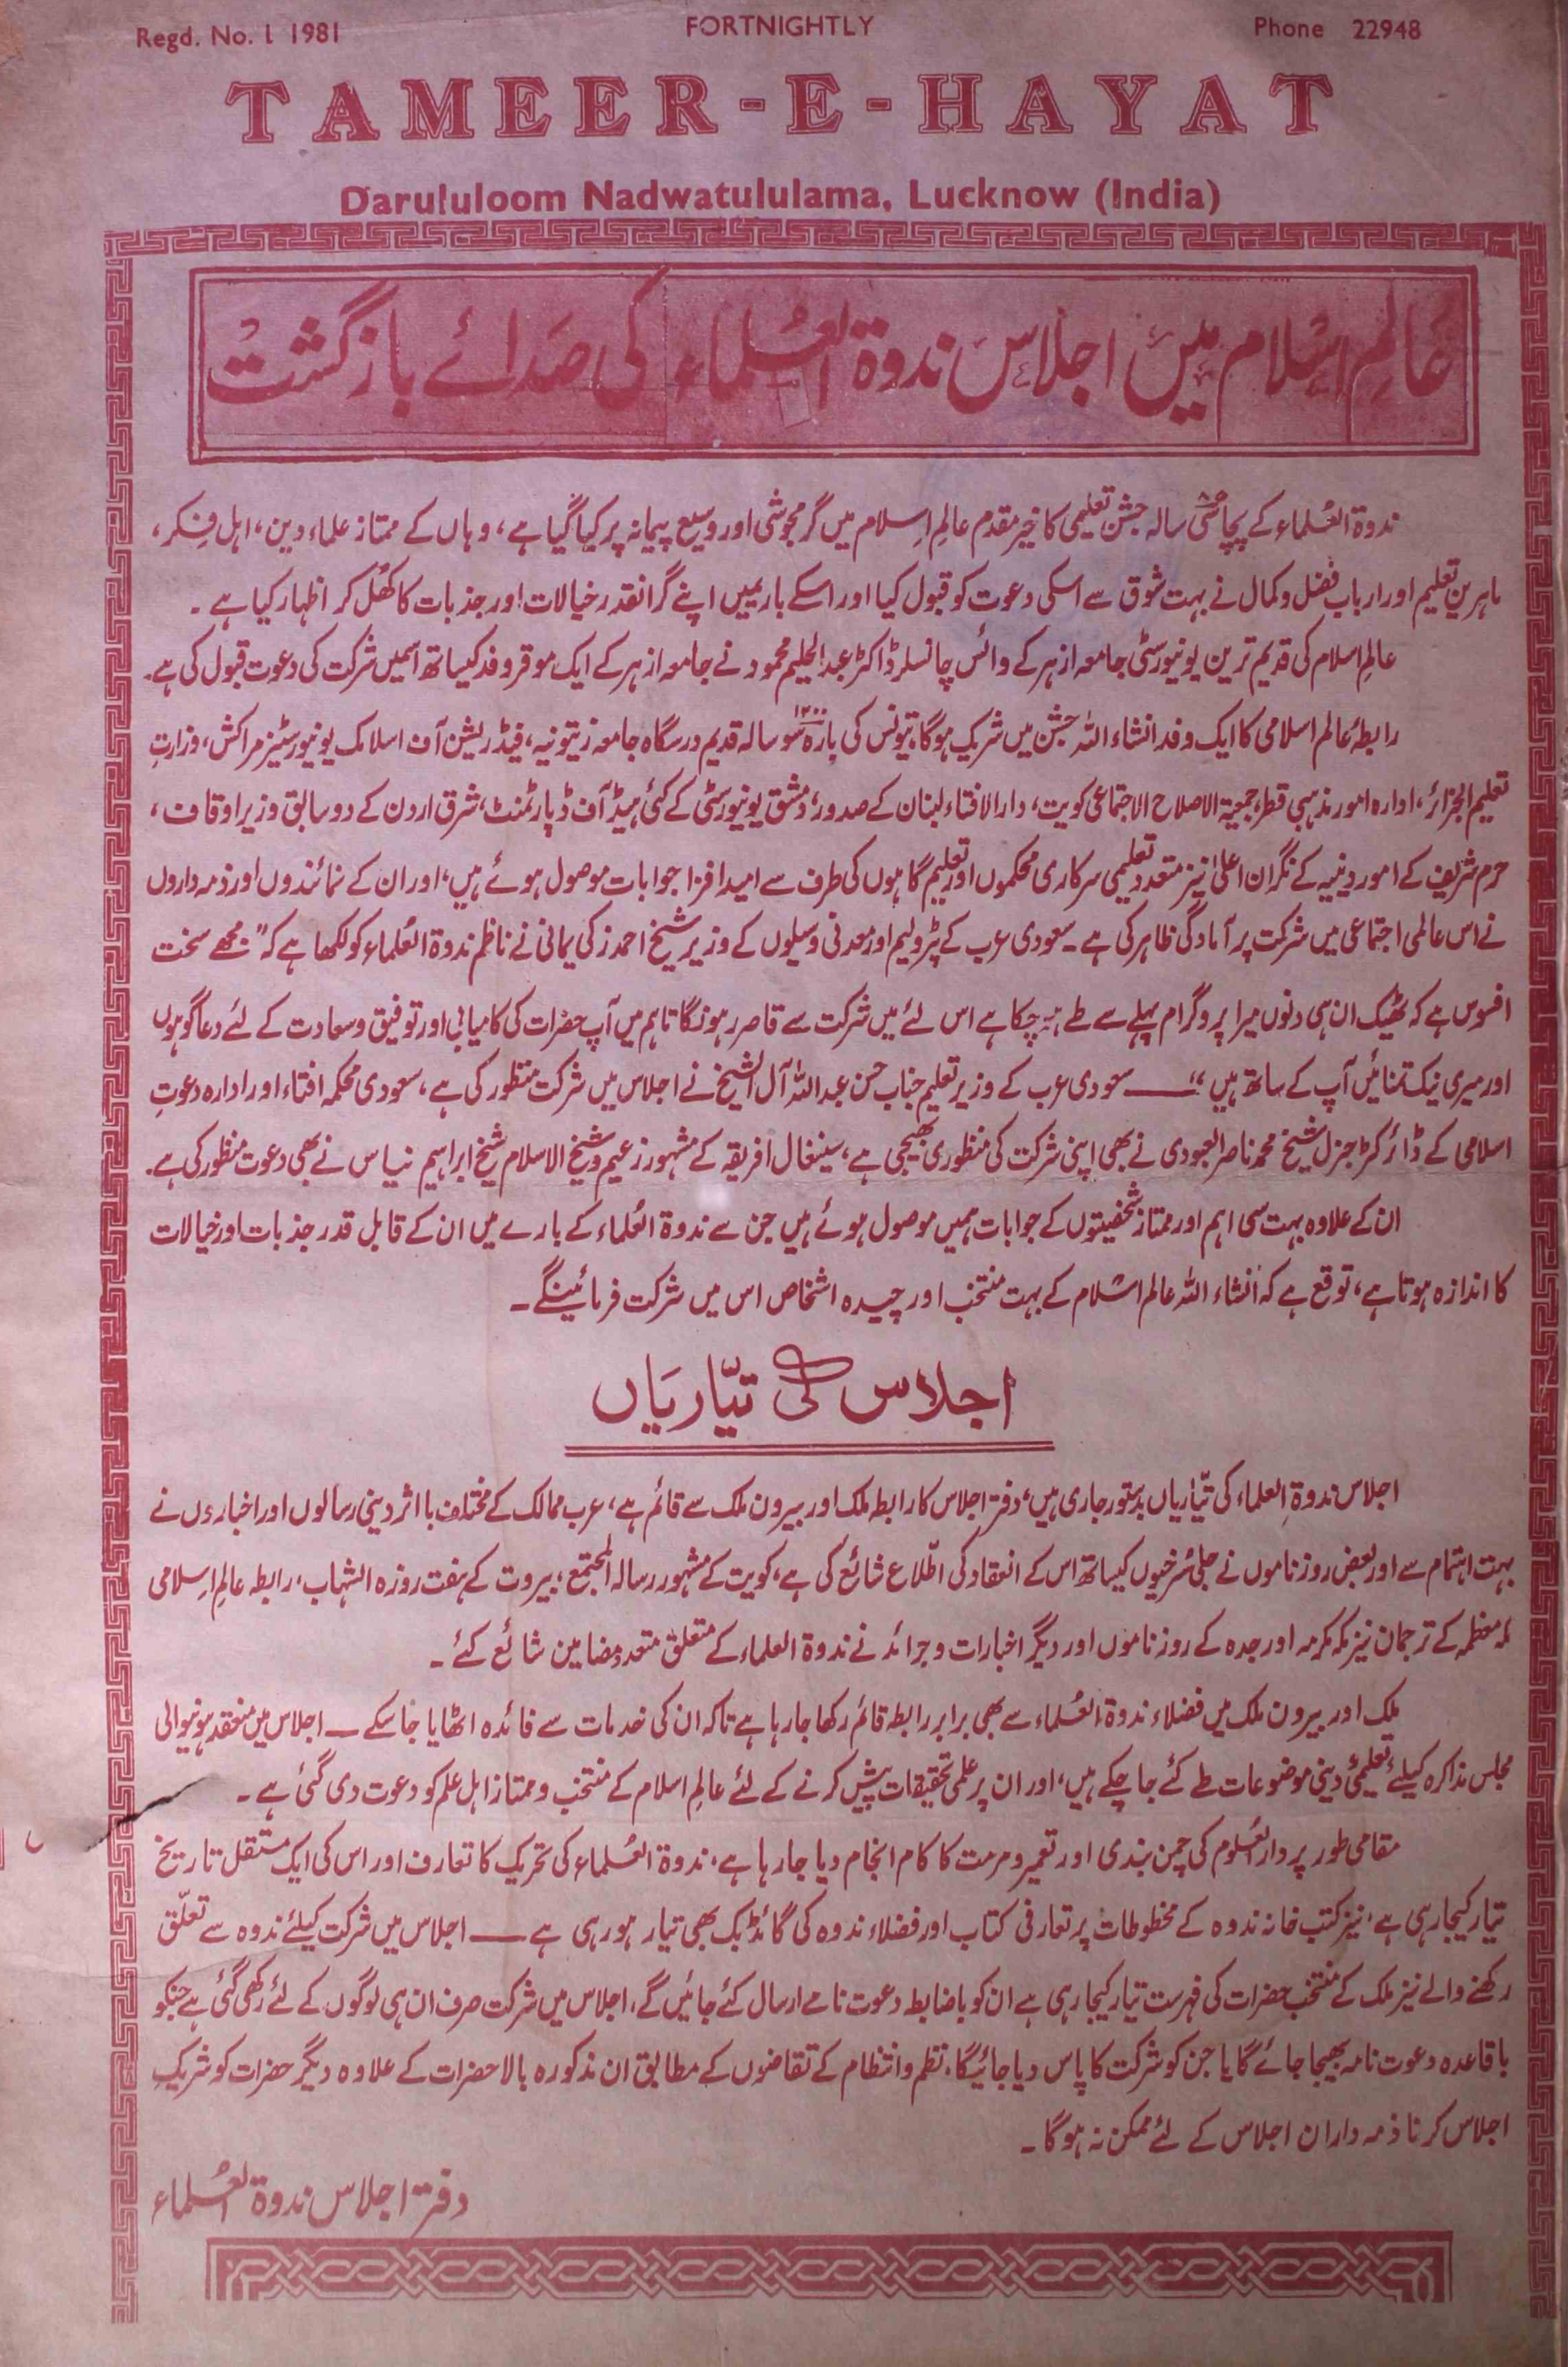 Regd. No. L 1981
FORTNIGHTLY
Phone 22948
TAMEER-E-HAYAT
Darululoom Nadwatululama, Lucknow (India)
عالمِ اسلام میں اجلاس ندوۃ العُلماء کی صدائے بازگشت
ندوۃ العُلماء کے پچاسی سالہ جشن تعلیمی کا خیر مقدم عالمِ اِسلام میں گرمجوشی اور وسیع پیمانہ پر کیا گیا ہے، وہاں کے ممتاز علماء دین، اہل فِکر،
ماہرین تعلیم اور ارباب فضل و کمال نے بہت شوق سے اسکی دعوت کو قبول کیا اور اسکے بارےمیں اپنے گرانقدر خیالات اور جذبات کا کھُل کر اظہار کیا ہے ۔
عالمِ اسلام کی قدیم ترین یونیورسٹی جامعہ ازہر کے وائس چانسلر ڈاکٹر عبد الحلیم محمود نے جامعہ ازہر کے ایک موقر وفد کیساتھ اسمیں شرکت کی دعوت قبول کی ہے۔
رابطۂ عالم اسلامی کا ایک وفد انشاء اللہ جشن میں شریک ہوگا، تیونس کی بارہ ۱۲۰۰ سو سالہ قدیم درسگاہ جامعہ زیتونیہ، فیڈریشن آف اسلامک یونیورسٹیز مراکش، وزارتِ
تعلیم الجزائر، ادارہ امور مذہبی قطر، جمعیۃ الاصلاح الاجتماعی کویت، دار الافتاء لبنان کے صدور، دمشق یونیورسٹی کے کئی ہیڈ آف ڈپارٹمنٹ، شرق اردن کے دو سابق وزیر اوقاف،
حرم شریف کے امور دینیہ کے نگران اعلیٰ نیز متعدد تعلیمی سرکاری محکموں اور تعلیم گاہوں کی طرف سے امید افزا جوابات موصول ہوئے ہیں، اور ان کے نمائندوں اور ذمہ داروں
نے اس عالمی اجتماعی میں شرکت پر آمادگی ظاہر کی ہے ۔ سعودی عرب کے پٹرولیم اور معدنی وسیلوں کے وزیر شیخ احمد زکی یمانی نے ناظم ندوۃ العُلماء کو لکھا ہے کہ " مجھے سخت
افسوس ہے کہ ٹھیک ان ہی دنوں میرا پروگرام پہلے سے طے ہو چکا ہے اس لئے میں شرکت سے قاصر رہونگا تاہم میں آپ حضرات کی کامیابی اور توفیق و سعادت کے لئے دعا گو ہوں
اور میری نیک تمنائیں آپ کے ساتھ ہیں " — سعودی عرب کے وزیر تعلیم جناب حسن عبد اللہ آل الشیخ نے اجلاس میں شرکت منظور کی ہے، سعودی محکمہ افتاء اور ادارہ دعوتِ
اسلامی کے ڈائرکٹر جنرل شیخ محمد ناصر العبودی نے بھی اپنی شرکت کی منظوری بھیجی ہے، سینغال افریقہ کے مشہور زعیم و شیخ الاسلام شیخ ابراہیم نیاس نے بھی دعوت منظور کی ہے۔
ان کے علاوہ بہت سی اہم اور ممتاز شخصیتوں کے جوابات ہمیں موصول ہوئے ہیں جن سے ندوۃ العُلماء کے بارے میں ان کے قابل قدر جذبات اور خیالات
کا اندازہ ہوتا ہے، توقع ہے کہ انشاء اللہ عالم اسلام کے بہت منتخب اور چیدہ اشخاص اس میں شرکت فرمائینگے ۔
اجلاس کی تیّاریاں
اجلاس ندوۃ العلماء کی تیّاریاں بدستور جاری ہیں، دفتر اجلاس کا رابطہ ملک اور بیرون ملک سے قائم ہے، عرب ممالک کے مختلف با اثر دینی رسالوں اور اخباروں نے
بہت اہتمام سے اور بعض روزناموں نے جلی سُرخیوں کیساتھ اس کے انعقاد کی اطّلاع شائع کی ہے، کویت کے مشہور رسالہ المجتمع، بیروت کے ہفت روزہ الشہاب، رابطہ عالمِ اِسلامی
مکہ معظمہ کے ترجمان نیز مکہ مکرمہ اور جدہ کے روزناموں اور دیگر اخبارات و جرائد نے ندوۃ العلماء کے متعلق متعدد مضامین شائع کئے ۔
ملک اور بیرون ملک میں فضلاء ندوۃ العُلماء سے بھی برابر رابطہ قائم رکھا جا رہا ہے تاکہ ان کی خدمات سے فائدہ اٹھایا جا سکے — اجلاس میں منعقد ہونیوالی
مجلس مذاکرہ کیلئے تعلیمی دینی موضوعات طے کئے جا چکے ہیں، اور ان پر علمی تحقیقات پیش کرنے کے لئے عالمِ اسلام کے منتخب و ممتاز اہل علم کو دعوت دی گئی ہے ۔
مقامی طور پر دارالعُلوم کی چمن بندی اور تعمیر و مرمت کا کام انجام دیا جا رہا ہے، ندوۃ العُلماء کی تحریک کا تعارف اور اس کی ایک مستقل تاریخ
تیار کیجا رہی ہے، نیز کتب خانہ ندوہ کے مخطوطات پر تعارفی کتاب اور فضلاء ندوہ کی گائڈ بک بھی تیار ہو رہی ہے — اجلاس میں شرکت کیلئے ندوہ سے تعلّق
رکھنے والے نیز ملک کے منتخب حضرات کی فہرست تیار کیجا رہی ہے ان کو باضابطہ دعوت نامے ارسال کئے جائیں گے، اجلاس میں شرکت صرف ان ہی لوگوں کے لئے رکھی گئی ہے جنکو
باقاعدہ دعوت نامہ بھیجا جائے گا یا جن کو شرکت کا پاس دیا جائیگا، نظم و انتظام کے تقاضوں کے مطابق ان مذکورہ بالا حضرات کے علاوہ دیگر حضرات کو شریکِ
اجلاس کرنا ذمہ داران اجلاس کے لئے ممکن نہ ہوگا ۔
دفتر اجلاس ندوۃ العُلماء